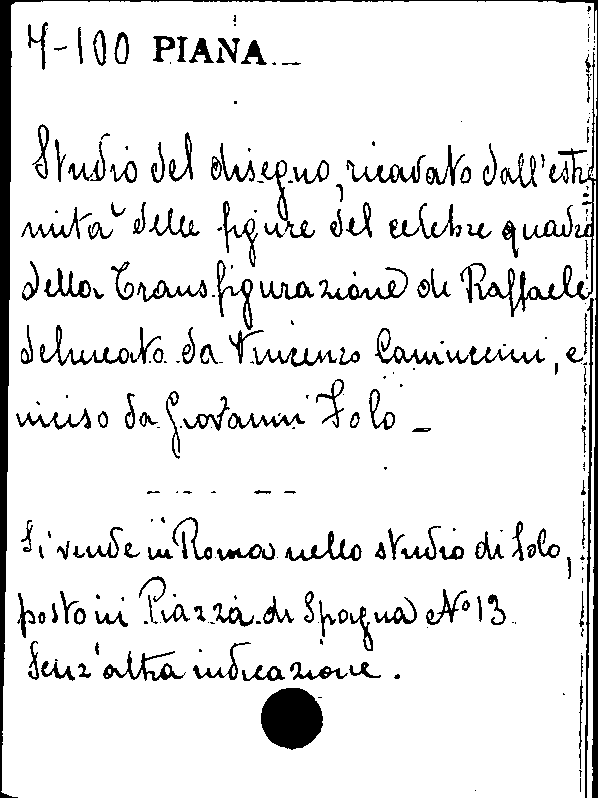 7-100 PIANA
Studio del disegno, ricavato dall'estre
mità delle figure del celebre quadro
della Transfigurazione di Raffaele
delineato da Vincenzo Camuccini, e
inciso da Giovanni Folo -
Si vende in Roma nello studio di Folo,
posto in Piazza di Spagna No 13
Senz'altra indicazione.